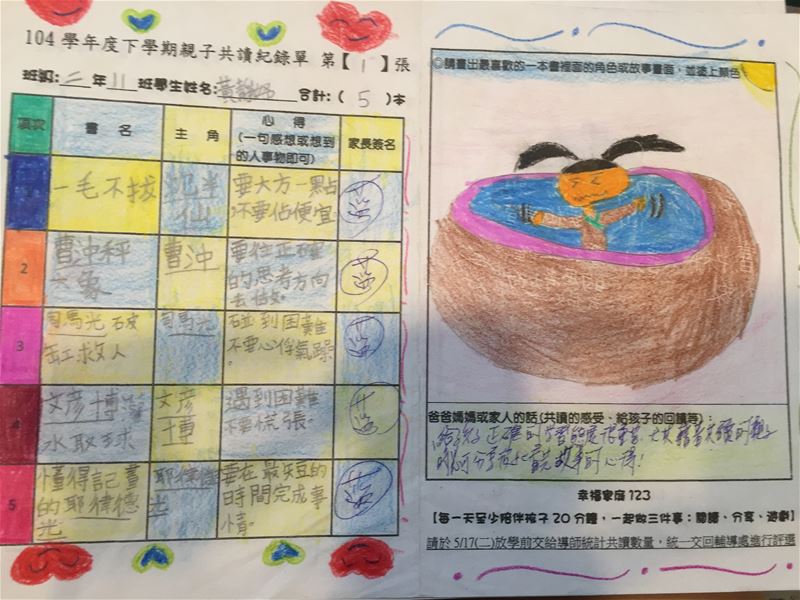 104學年度下學期親子共讀紀錄單 第【1】張
班級:三年11班學生姓名:黃 合計:(5)本
項次 書名 主角 心得 家長簽名
(一句感想或想到
的人事物即可)
一毛不拔 半仙 要大方一點
不要佔便宜
2 曹沖秤 曹沖 要往正確
大象 的思考方向
去
3 司馬光破 司馬光 碰到困難
缸救人 不要心浮氣躁
。
4 文彥博灌 文彥 遇到困難
水取球 博 不要慌張。
5 懂得記畫 耶律德 要在最短的
的耶律德 光 時間完成事
光 情。
◎請畫出最喜歡的一本書裡面的角色或故事畫面,並塗上顏色
爸爸媽媽或家人的話(共讀的感受、給孩子的回饋等):
給孩子正確的學習態度很重要,
故事的心得!
幸福家庭123
【每一天至少陪伴孩子20分鐘,一起做三件事:閱讀、分享、遊戲】
請於5/17(二)放學前交給導師統計共讀數量,統一交回輔導處進行評選